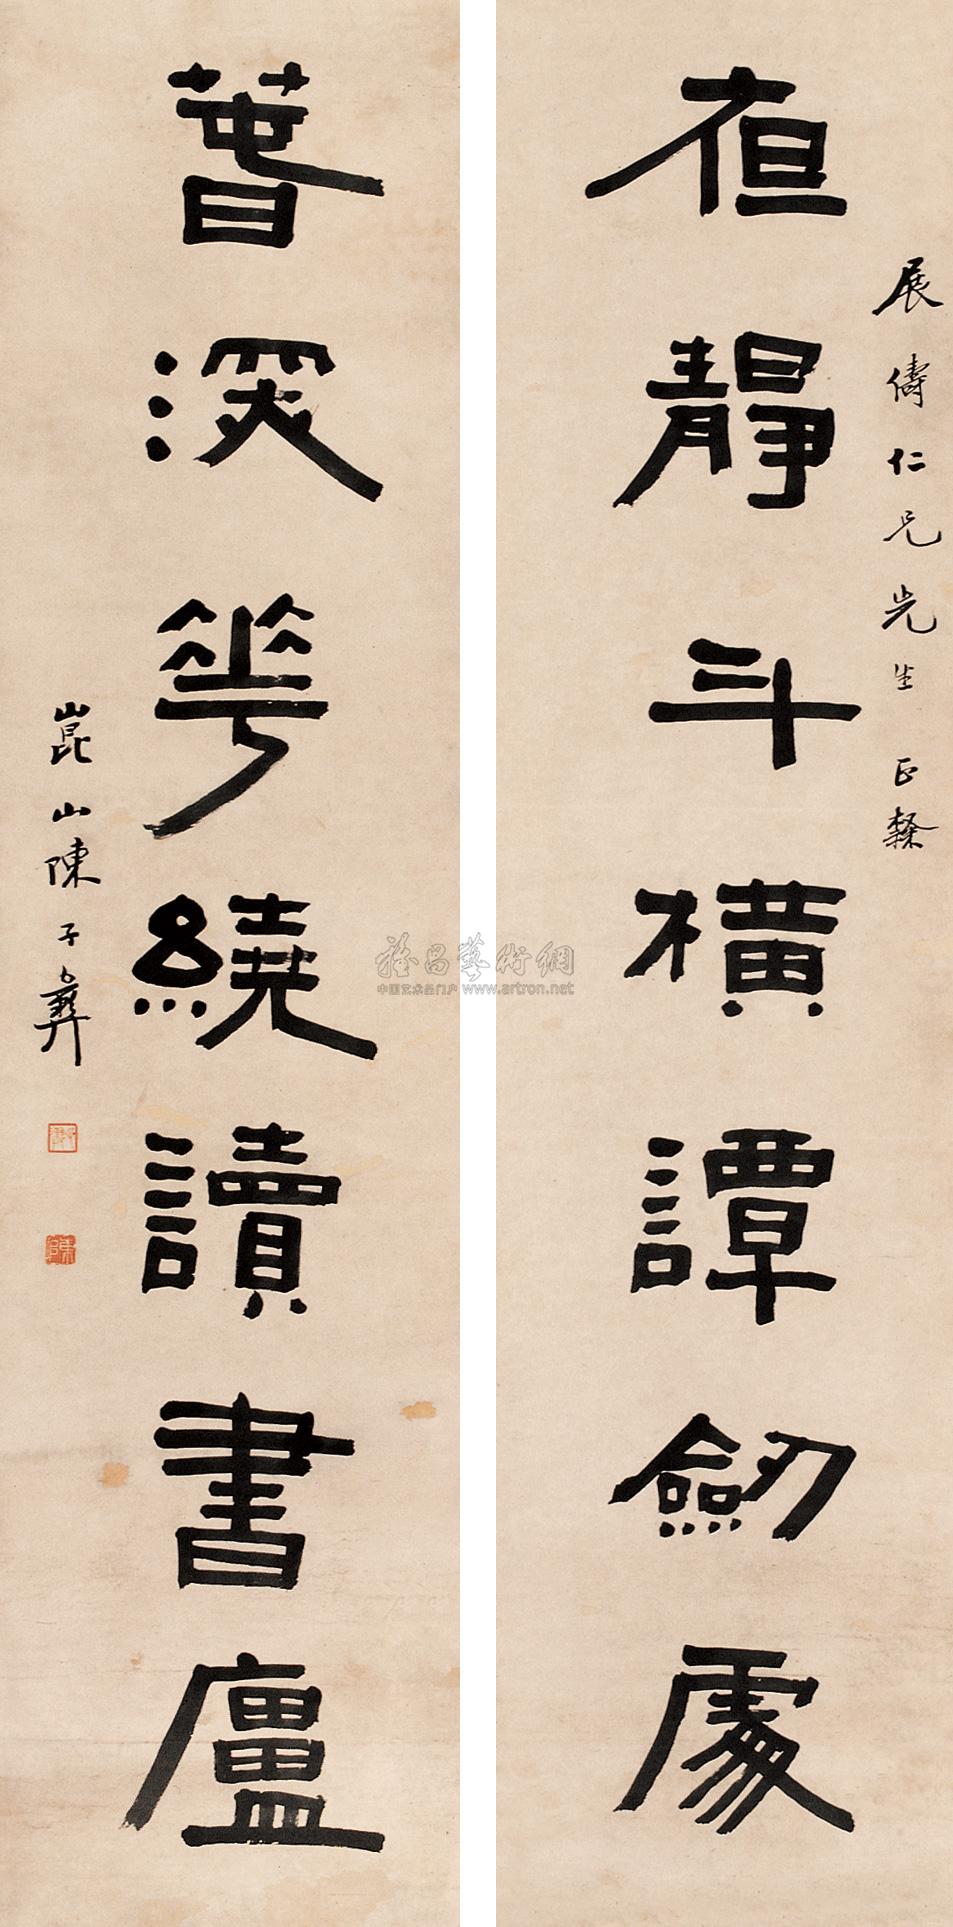 展儔仁兄先生正
夜靜斗橫譚劒處
春深花繞讀書廬
崑山陳子彝
雅昌藝術網
中国艺术品门户 www.artron.net